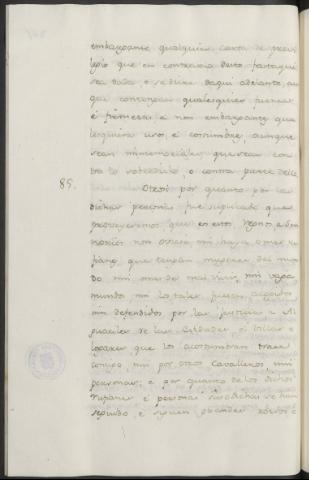 embargante qualquier carta de previ
legio que en contrario desto fasta aqui
sea dada, o se diere daqui adelante, au
que contengan qualesquier penas
é firmezas é non embargante qua
lesquier uso, é costumbre, aunque
sean inmemoriales que sean con
tra lo sobredicho, o contra parte dello
85. Otrosi por quanto por las
dichas peticion fue suplicado que
proveyesemos que en estos Reynos é Seno
rios non osase, ni haya omes ru
fianes que tengan mugeres del mun
do ni omes de mal vivir, ni vaga
mundos ni los tales sean acogidos
nin defendidos por las justicias é Al
guaciles de las Cibdades, é Villas é
logares que los acostumbran traer
consigo, nin por otros Cavalleros nin
personas; e por quanto de los dichos
rufianes é personas susodichas se han
seguido, é siguen grandes robos é